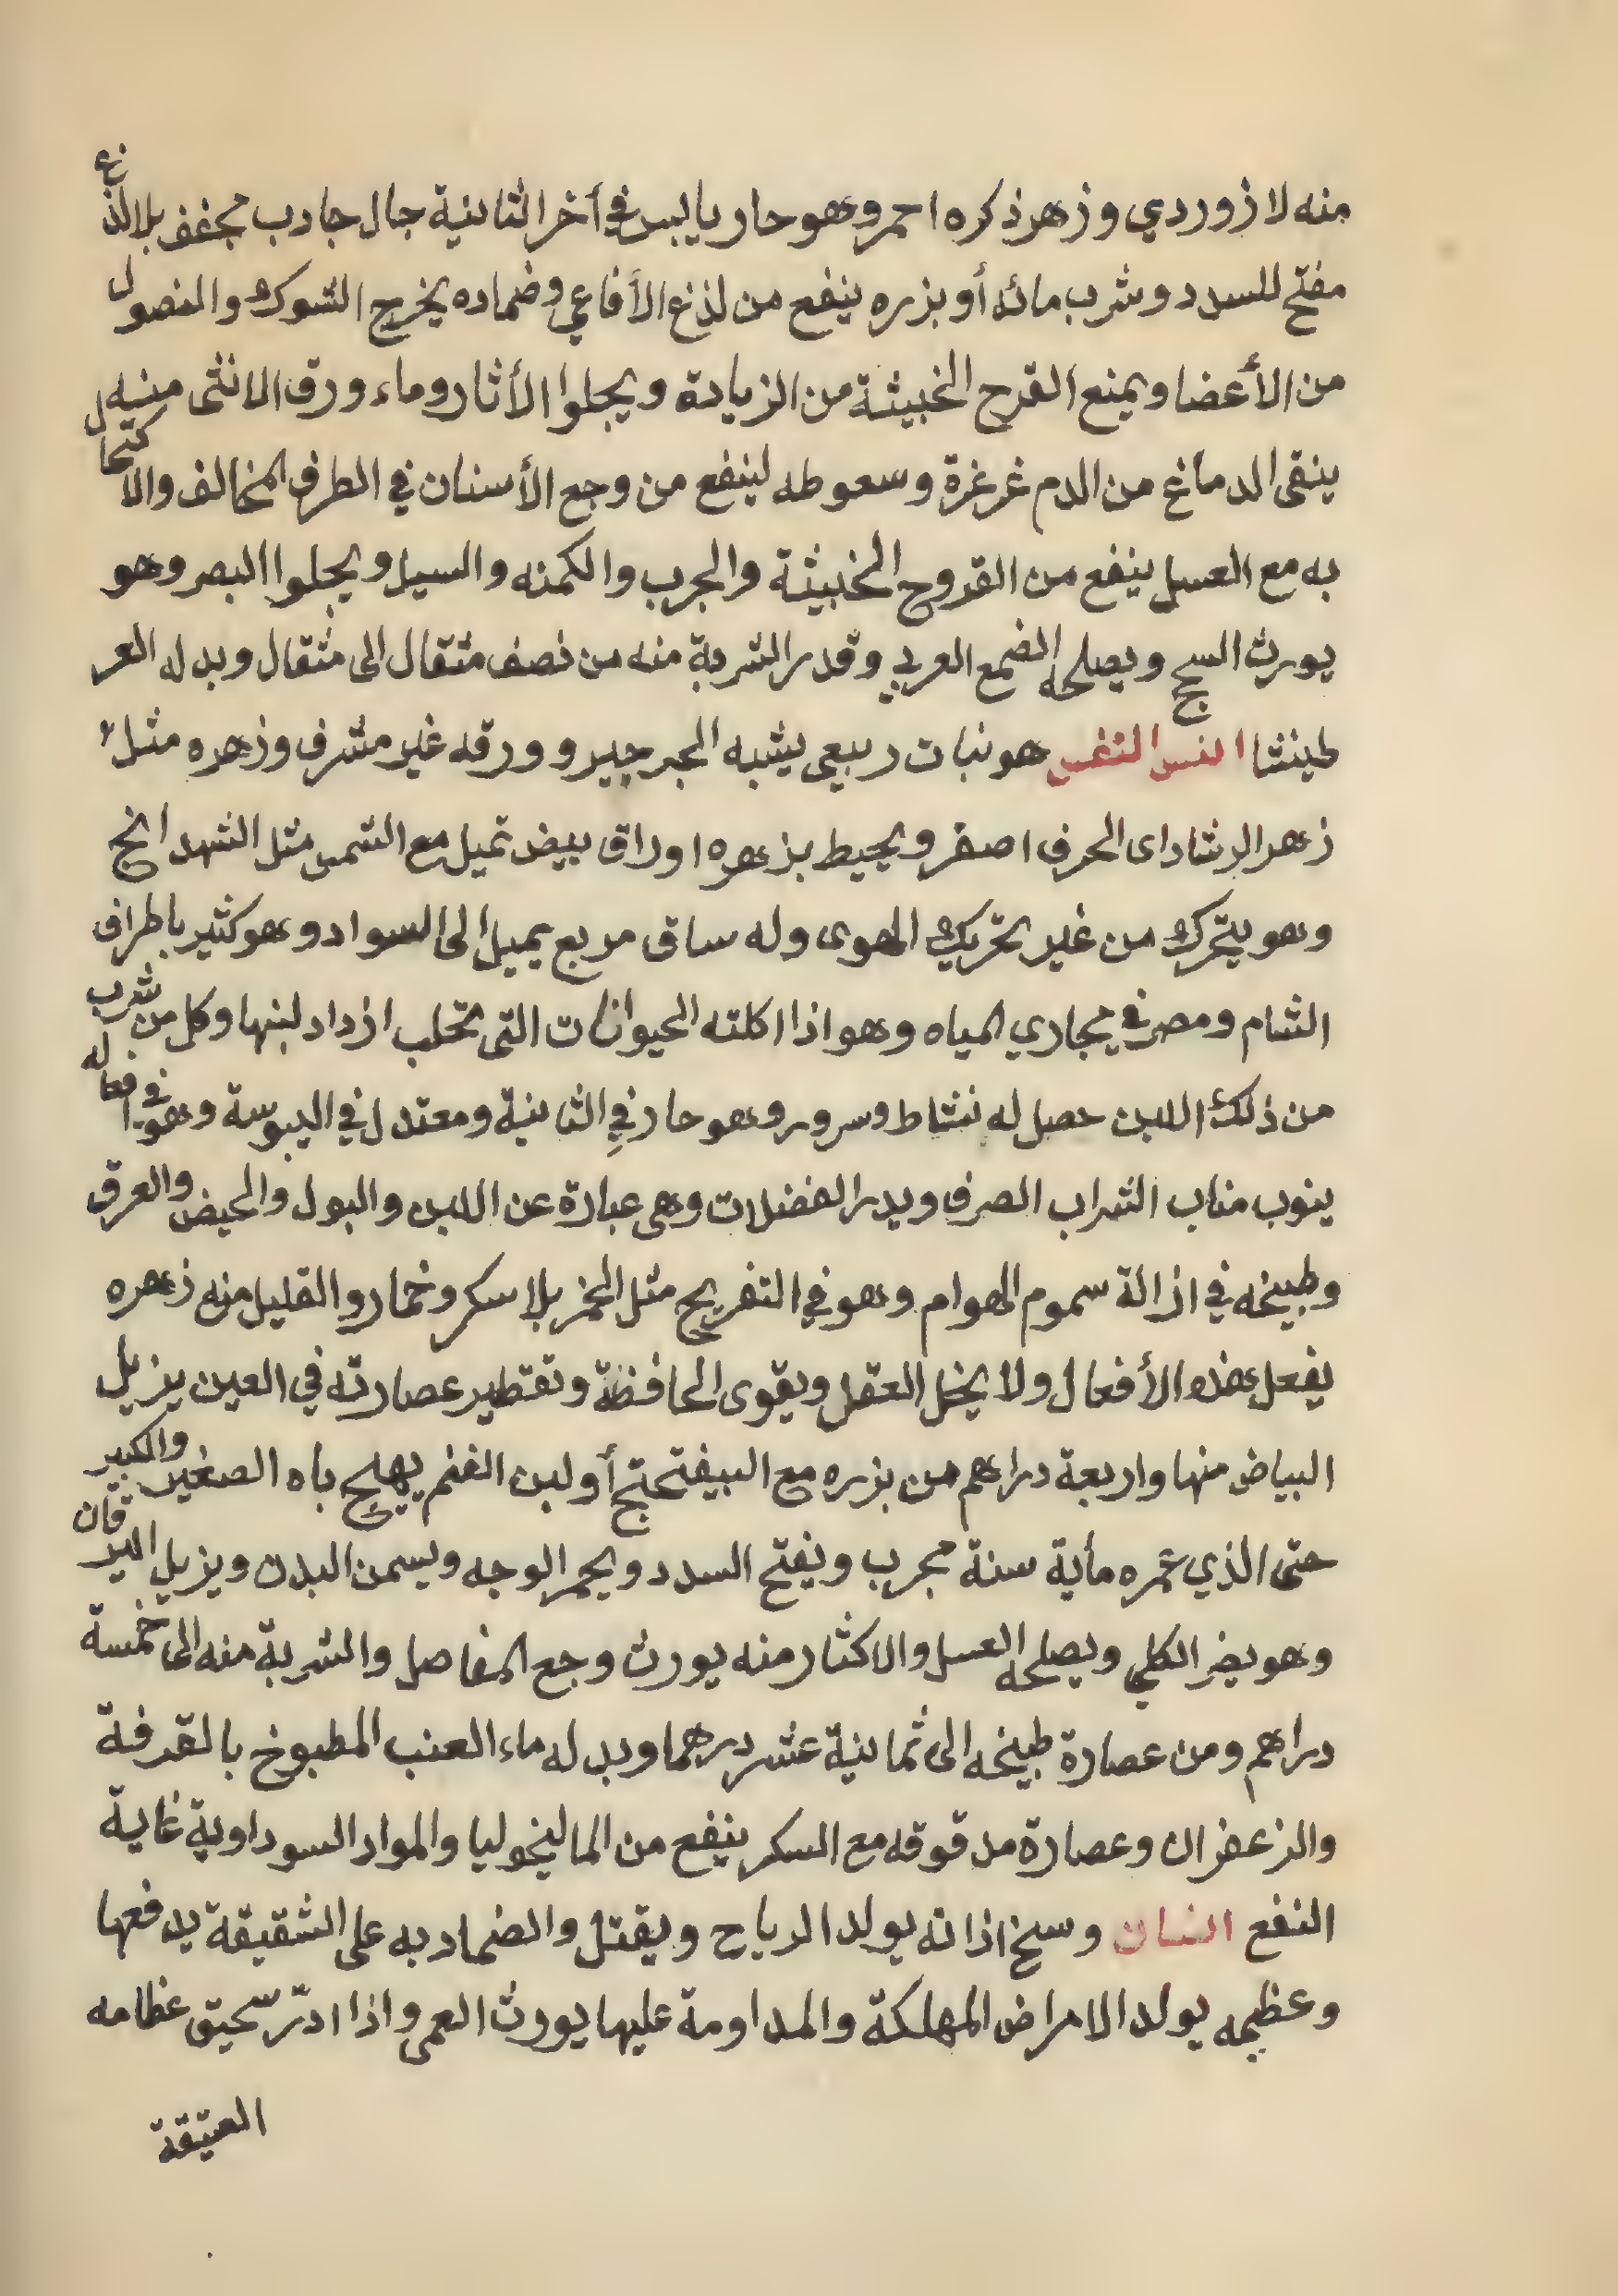 منه لازوردي وزهر ذكره احمر وهو حار يابس في أخر الثانية جال جادب مجفف بلا لذع
مفتح للسدد وشرب مائه أو بزره ينفع من لذغ الأفاعي وضماده يخرج الشوك والنصول
من الأعضا ويمنع القرح الخبيثة من الزيادة ويجلوا الأثار وماء ورق الانثى منه
ينقى الدماغ من الدم غرغرة وسعوطه لينفع من وجع الأسنان في الطرف المخالف والاكتحال
به مع العسل ينفع من القروح الخبيثة والجرب والكمنه والسبل ويجلوا البصر وهو
يورث السحج ويصلحه الضمع العربي وقدر الشربة منه من نصف مثقال الى مثقال وبدله العر
طينثا النس النفس هو نبات ربيعى يشبه الجرجير وورقه غير مشرف وزهره مثل
زهر الرشاد اى الحرف اصفر ويحيط بزهره اوراق بيض تميل مع الشمس مثل الشهدانج
وهو يتحرك من غير تحريك الهوى وله ساق مربع يميل الى السواد وهو كثير باطراف
الشام ومصر في مجاري المياه وهو اذا اكلته الحيوانات التى تحلب ازداد لبنها وكل من شرب
من ذلك اللبن حصل له نشاط وسرور وهو حار في الثانية ومعتدل في اليبوسة وهو في افعاله
ينوب مناب الشراب الصرف ويدر الفضلات وهى عبارة عن اللبن والبول والحيض والعرق
وطبيخه في ازالة سموم الهوام وهو في التفريح مثل الخمر بلا سكر وخمار والقليل منه زهره
يفعل هذه الأفعال ولا يخل العقل ويقوى الحافظة وتقطير عصارته في العين يزيل
البياض منها واربعة دراهم من بزره مع البيفتحتج أو لبن الغنم يهيج باه الصغير والكبير
حتى الذي عمره مأية سنة مجرب ويفتح السدد ويحمر الوجه ويسمن البدن ويزيل اليرقان
وهو يضر الكلى ويصلحه العسل والاكثار منه يورث وجع المفاصل والشربة منه الى خمسة
دراهم ومن عصارة طبيخه الى ثمانية عشر درهما وبدله ماء العنب المطبوخ بالقرفة
والزعفران وعصارة مدقوقه مع السكر ينفع من الماليخوليا والمواد السوداوية غاية
النفع النسان وسخ اذانه يولد الرياح ويقتل والضماد به على الشقيقة يدفعها
وعظمه يولد الامراض المهلكة والمداومة عليها يورث العمى واذا ادثر سحيق عظامه
العتيقة